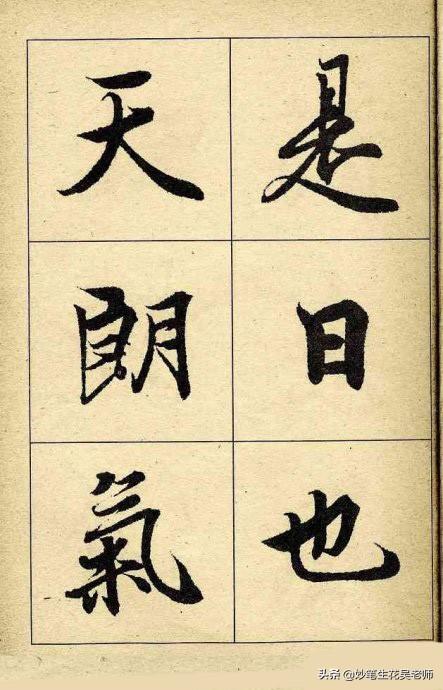 是日也
天朗氣
头条 @妙笔生花吴老师